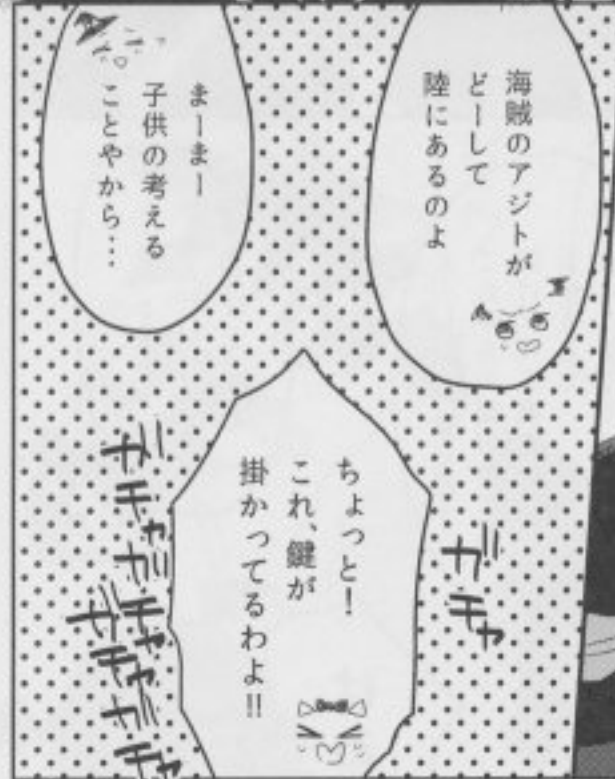 海賊のアジトが
どーして
陸にあるのよ
まーまー
子供の考える
ことやから…
ガチャ
ちょっと!
これ、鍵が
掛かってるわよ!!
ガチャガチャ
ガチャガチャ